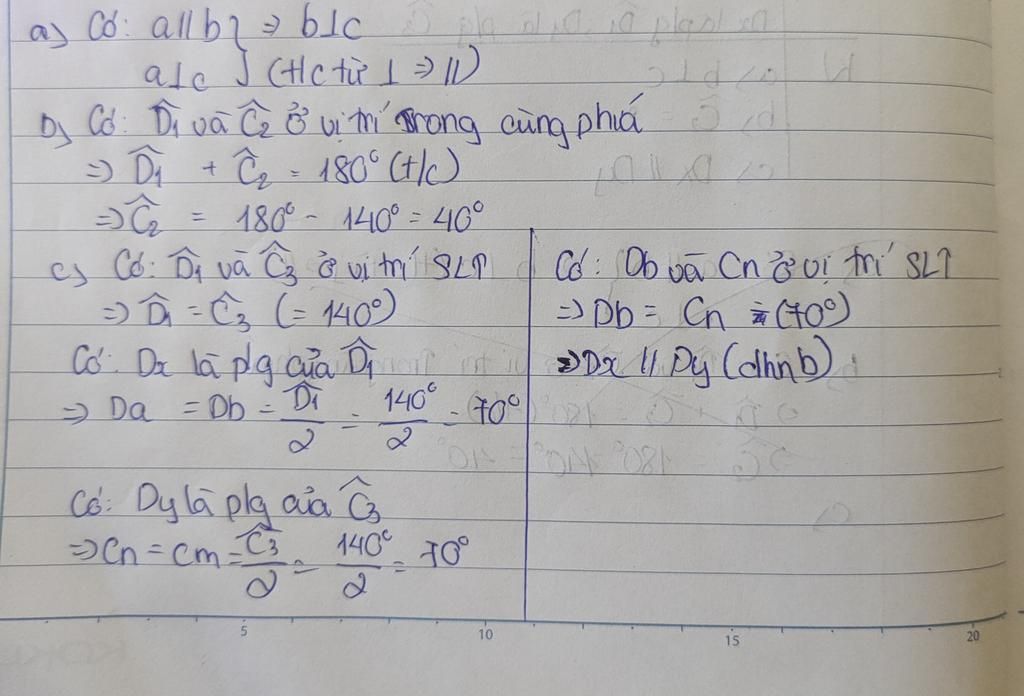 a) Có: a∥b } ⇒ b⊥c
a⊥c } (t/c từ ⊥ ⇒ ∥)
b) Có: D̂₁ và Ĉ₂ ở vị trí trong cùng phía
⇒ D̂₁ + Ĉ₂ = 180° (t/c)
⇒ Ĉ₂ = 180° - 140° = 40°
c) Có: D̂₁ và Ĉ₃ ở vị trí SLT
⇒ D̂₁ = Ĉ₃ (= 140°)
Có: Dx là plg của D̂₁
⇒ Da = Db = D̂₁/2 = 140°/2 = 70°
Có: Dy là plg của Ĉ₃
⇒ Cn = Cm = Ĉ₃/2 = 140°/2 = 70°
Có: Db và Cn ở vị trí SLT
⇒ Db = Cn = (70°)
⇒ Dx // Dy (dhnb)
5 10 15 20